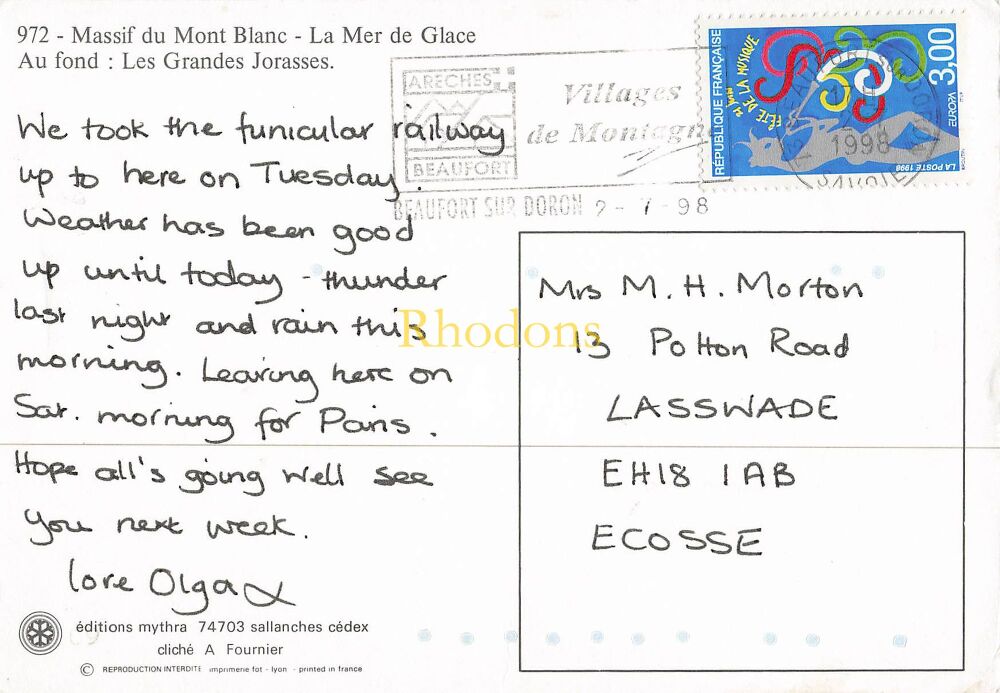 972 - Massif du Mont Blanc - La Mer de Glace
Au fond : Les Grandes Jorasses.
RÉPUBLIQUE FRANÇAISE
21 juin FÊTE DE LA MUSIQUE
3,00
EUROPA
LA POSTE 1998
ARECHES
BEAUFORT
Villages
de Montagne
BEAUFORT SUR DORON 2-7-98
BEAUFORT SUR DORON
1998
SAVOIE
We took the funicular railway
up to here on Tuesday.
Weather has been good
up until today - thunder
last night and rain this
morning. Leaving here on
Sat. morning for Paris.
Hope all's going well see
you next week.
love Olga x
Mrs M. H. Morton
13 Polton Road
LASSWADE
EH18 1AB
ECOSSE
Rhodons
éditions mythra 74703 sallanches cédex
cliché A Fournier
© REPRODUCTION INTERDITE imprimerie fot - lyon - printed in france